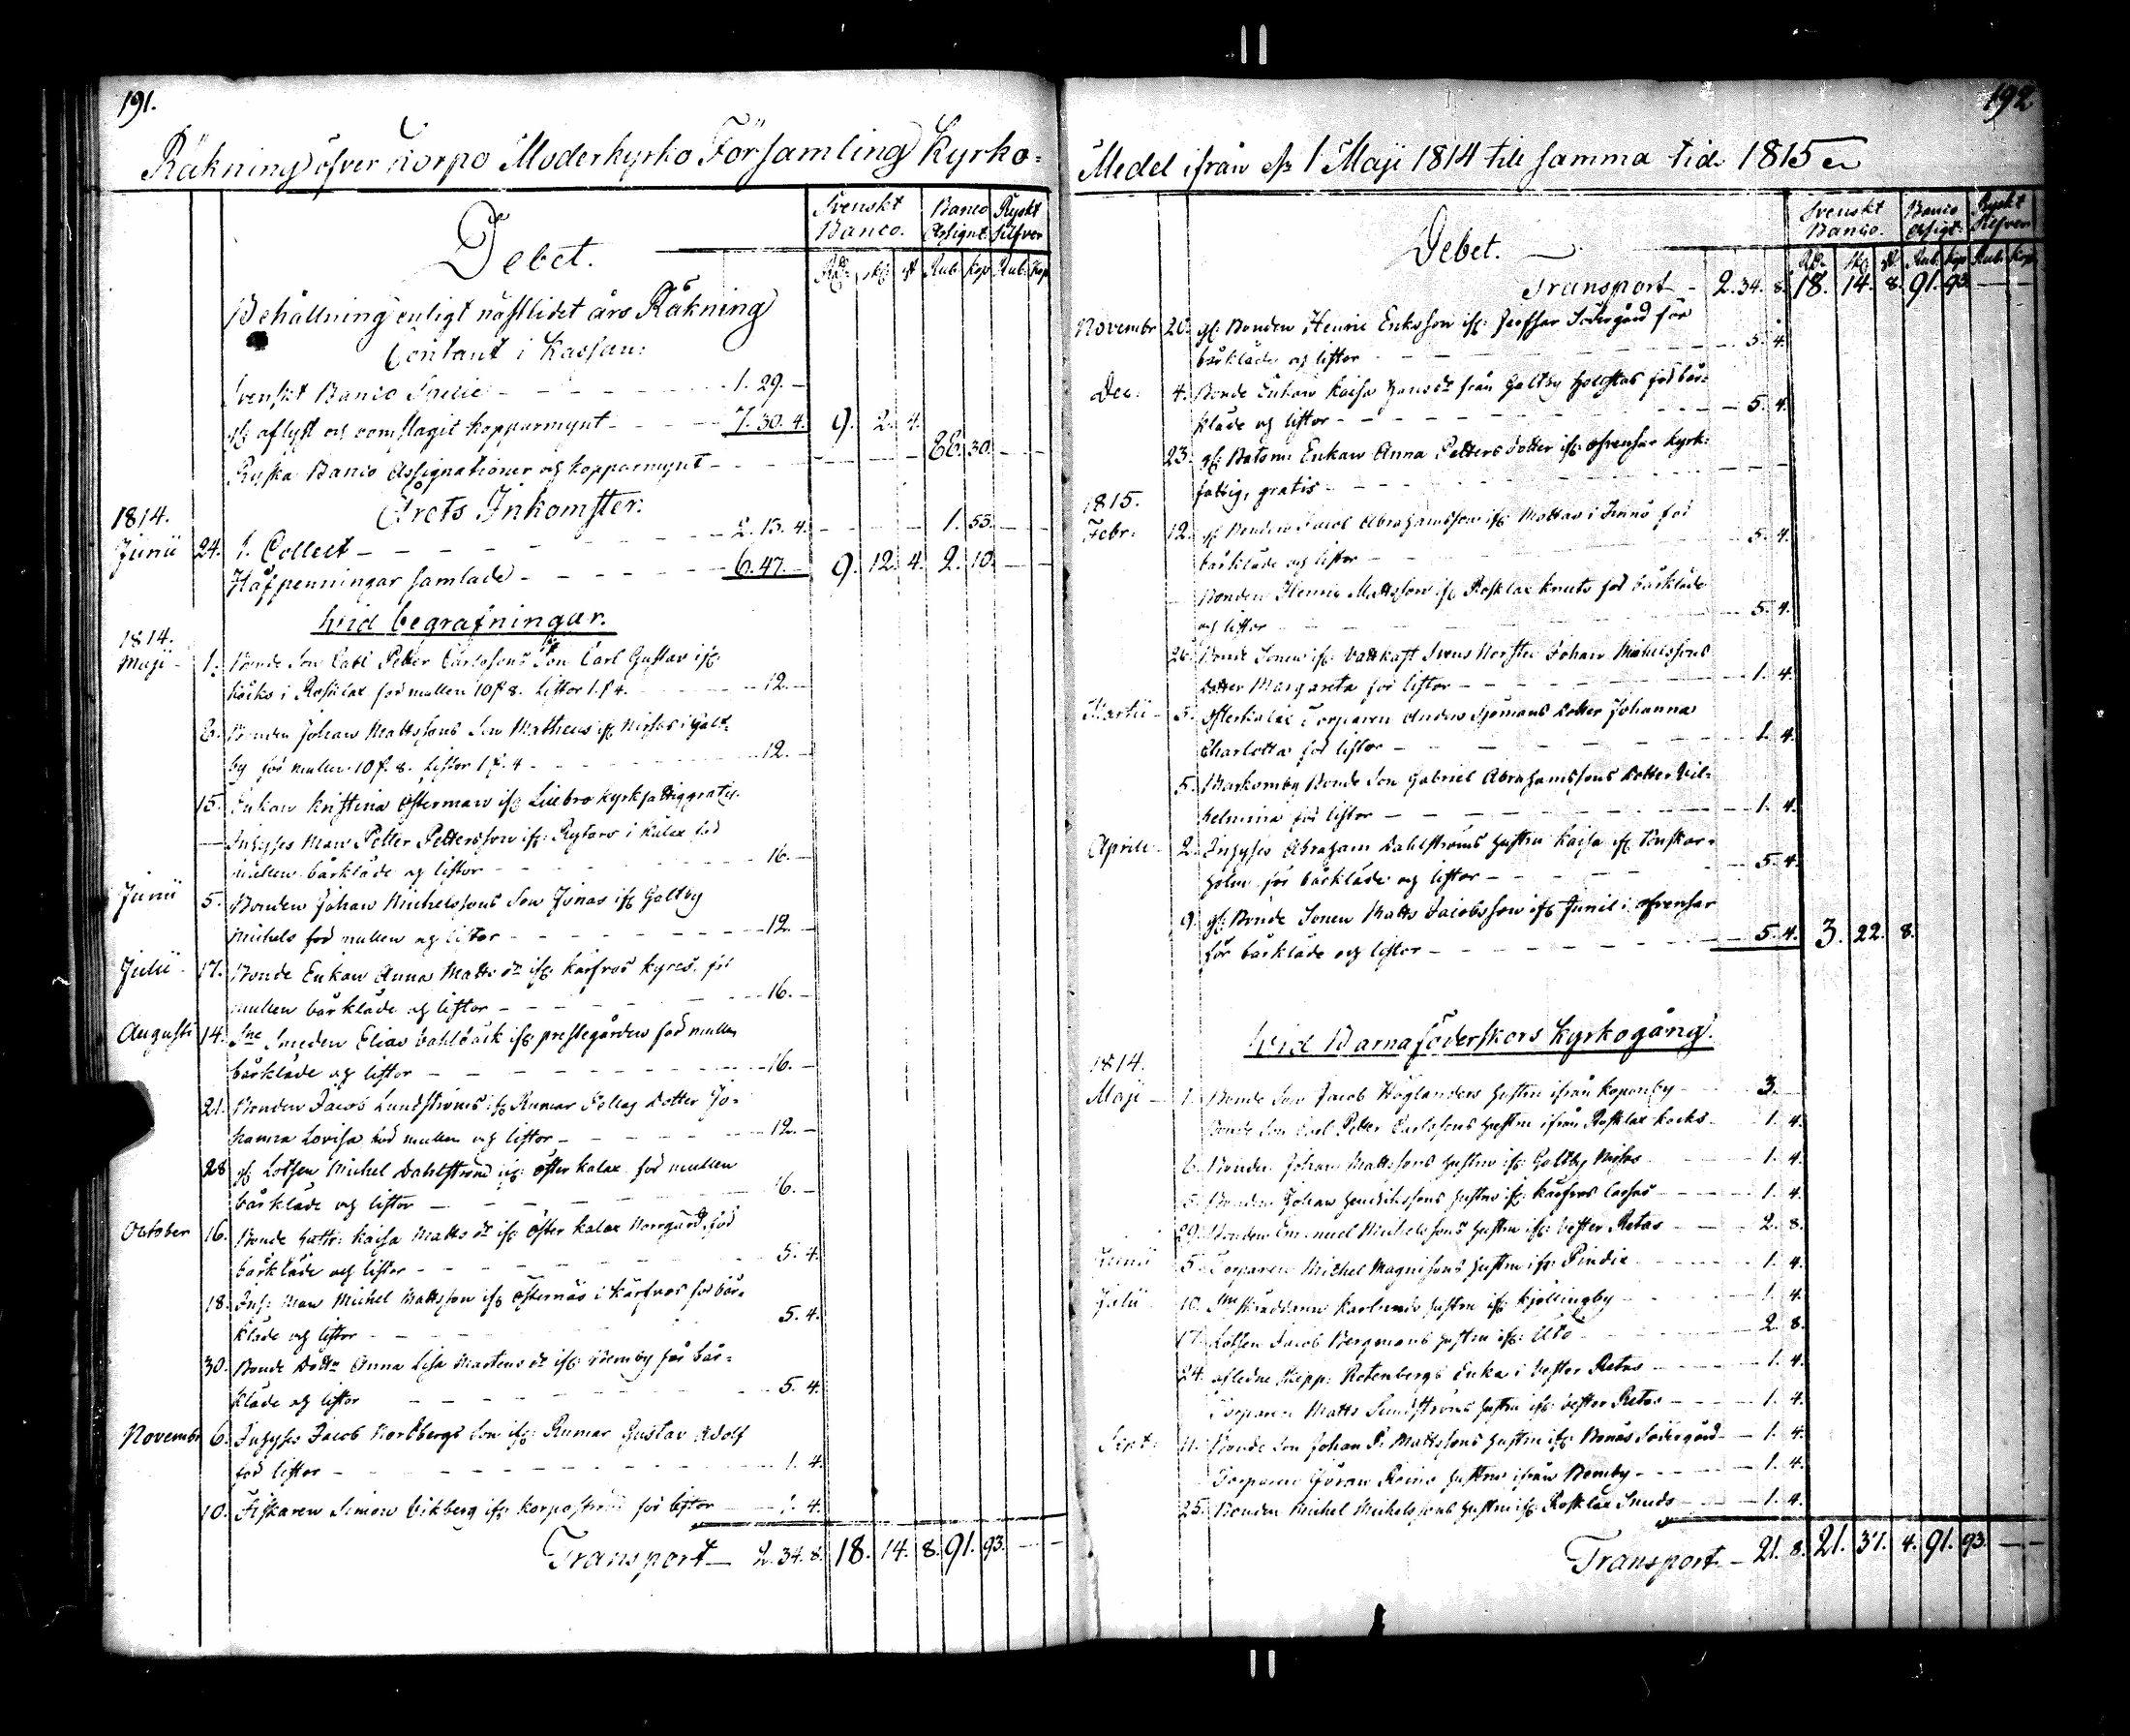 191.
Räkning öfver Korpo Moderkyrko Församling Kyrko=
Debet.
Svenskt Banco.
Banco Assignt:
Ryskt Silfver
Rd: sk: rst Rub: kop Rub: kop
Behållning enligt nästlidet års Räkning
Contant i Kassan:
Svenskt Banco Specie - - - 1. 29. -
aflyst och omslagit kopparmynt - - - 7. 30. 4. 9. 2. 4.
Ryska Banco Assignationer och kopparmynt - - - 30.
Årets Inkomster:
1814.
Junii 24. 1. Collect - - - 2. 13. 4. 1. 53.
Håfpenningar samlade - - - 6. 47. - 9. 12. 4. 2. 10.
Wid begrafningar.
1814.
Maji 1. Bonde Son Carl Petter Carlssons Son Carl Gustav ifr:
Kocks i Rosklax för mullen 10 f 8. listor 1. f 4. - - - 12. -
Bonden Johan Mattssons Son Matheus ifr: Nisses i Galt-
by för mullen 10 f. 8. listor 1 f. 4 - - - 12. -
15. Enkan Kristina Österman ifr: kyrkfattig gratis.
Inhyses Man Petter Pettersson ifr: i
mullen bårkläde och listor - - - 16. -
Junii 5. Bonden Johan Michelssons Son Jonas ifr: Galtby
Michels för mullen och listor - - - 12. -
Julii 17. Bonde Enkan Anna Matts dr ifr: Kårfvos för
mullen bårkläde och listor - - - 16. -
Augusti 14. Smeden Elias ifr: prestegården för mullen
bårkläde och listor - - - 16. -
21. Bonden Jacob Lundströms ifr: Rumar Dotter Jo-
hanna Lovisa för mullen och listor - - - 12. -
28. Lotsen Michel Dahlström ifr: Öster kalax för mullen
bårkläde och listor - - - 16. -
October 16. Bonde hustr: Kaisa Matts dr ifr: Öster kalax Norrgård för
bårkläde och listor - - - 5. 4.
18. Inh: Man Michel Mattsson ifr: Östernäs i Kårfvos för bår=
kläde och listor - - - 5. 4.
30. Bonde Dottr Anna Lisa Martens dr ifr: för bår=
kläde och listor - - - 5. 4.
Novembr 6. Inhyses Jacob Nordbergs Son ifr: Rumar Gustav Adolf
för listor - - - 1. 4.
10. Fiskaren Simon Vikberg ifr: Korpoström för listor - - - 1. 4.
Transport - 2. 34. 8. 18. 14. 8. 91. 93. - -
192
Medel ifrån d: 1 Maji 1814 till samma tid 1815
Debet.
Svenskt Banco.
Banco Assigt:
Ryskt Silfver
Rd. sk: rst Rub: kop Rub: kop
Transport - 2. 34. 8. 18. 14. 8. 91. 93. - -
Novembr 20. Bonden Henric Ericksson ifr: Södergård för
bårkläde och listor - - - 5. 4.
Dec: 4. Bonde Enkan Kaisa Hans dr från Galtby för bår=
kläde och listor - - - 5. 4.
23. Enkan Anna Petters dotter ifr: kyrk:
fattig, gratis - - -
1815.
Febr: 12. Bonden Jacob Abrahamsson ifr: Mattas i för
bårkläde och listor - - - 5. 4.
Bonden Henric Mattsson ifr: Rosklax Knuts för bårkläde
och listor - - - 5. 4.
26. Bonde Sonen ifr: Vattkast Johan Michelssons
dotter Margareta för listor - - - 1. 4.
Martii 5. Österkalax Torparen Anders Sjömans dotter Johanna
Charlotta för listor - - - 1. 4.
5. Markomby Bonde Son Gabriel Abrahamssons dotter Vil-
helmina för listor - - - 1. 4.
Aprill 2. Inhyses Abraham Dahlströms hustru Kaisa ifr:
holm för bårkläde och listor - - - 5. 4.
9. Bonde Sonen Matts Jacobsson ifr: Junil i
för bårkläde och listor - - - 5. 4. 3. 22. 8.
Wid Barnaföderskors kyrkogång.
1814.
Maji 1. Bonde Son Jacob Höglunders hustru ifrån - - 3.
Bonde Son Carl Petter Carlssons hustru ifrån Rosklax Kocks - 1. 4.
Bonden Johan Mattssons hustru ifr: Galtby Nisses - 1. 4.
Bonden Johan Hendrikssons hustru ifr: Kårfvos - 1. 4.
29. Bonden Emanuel Michelssons hustru ifr: Vester Retas - 2. 8.
Junii 5. Torparen Michel Magnssons hustru ifr: - 1. 4.
Julii 10. Karlunds hustru ifr: Kjellingby - 1. 4.
17. Lotsen Jacob Bergmans hustru ifr: Utö - 2. 8.
24. aflidne Skepp: Rotenbergs Enka i Vester Retas - 1. 4.
Torparen Matts Sundströms hustru ifr: Vester Retas - 1. 4.
Sept: 11. Bonde Son Johan Mattssons hustru ifr: Södergård - 1. 4.
Torparen Göran hustru ifrån - 1. 4.
25. Bonden Michel Michelssons hustru ifr: Rosklax - 1. 4.
Transport - 21. 8. 21. 37. 4. 91. 93. - -